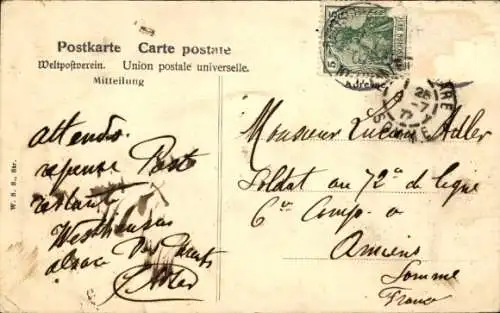 Postkarte Carte postale
Weltpostverein. Union postale universelle.
Mitteilung
Adresse
5
SOMME
W. S. S., Str.
attends
reponse Post
restante
Westhausen
alsace
Adler
Monsieur Lucien Adler
Soldat au 72e de ligne
6e Comp. a
Amiens
Somme
France